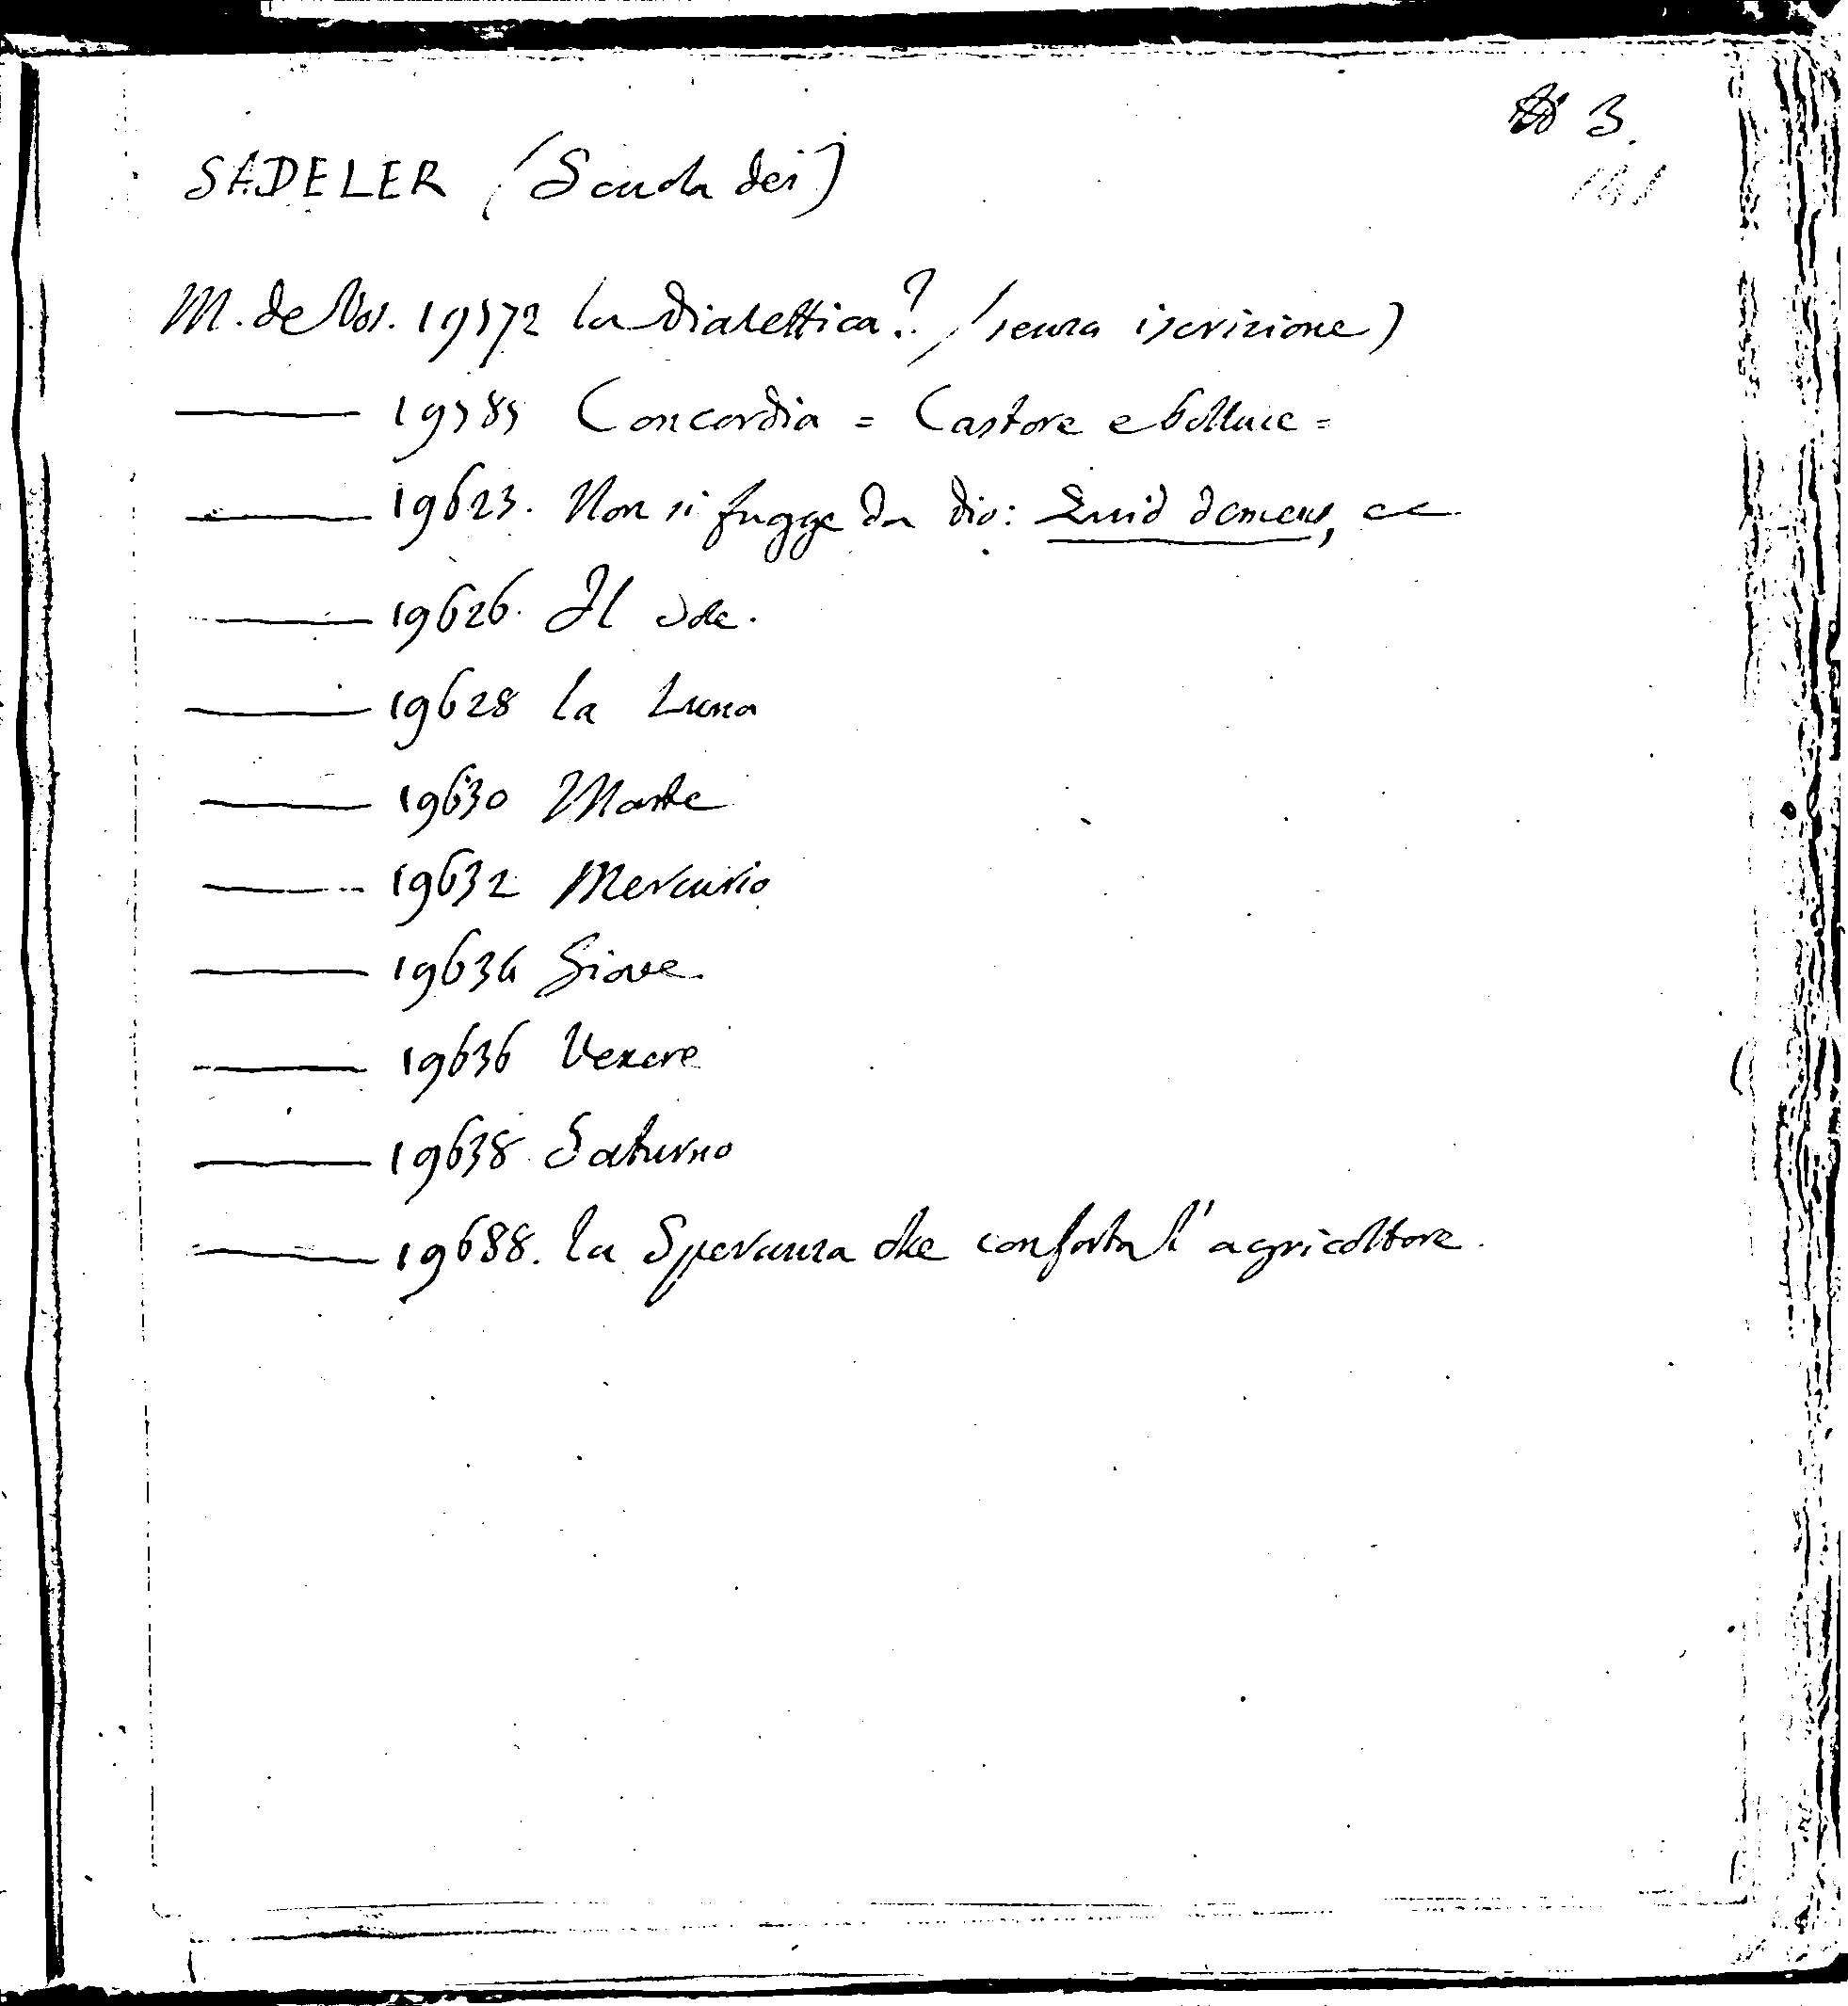 3.
181
SADELER (Scuola dei)
M. de Vos. 19572 la Dialettica? (senza iscrizione)
——— 19585 Concordia = Castore e Polluce =
——— 19623. Non si fugge da Dio: Quid demens, ec
——— 19626. Il Sole.
——— 19628 la Luna
——— 19630 Marte
——— 19632 Mercurio
——— 19634 Giove.
——— 19636 Venere
——— 19638 Saturno
——— 19688. la Speranza che conforta l'agricoltore.